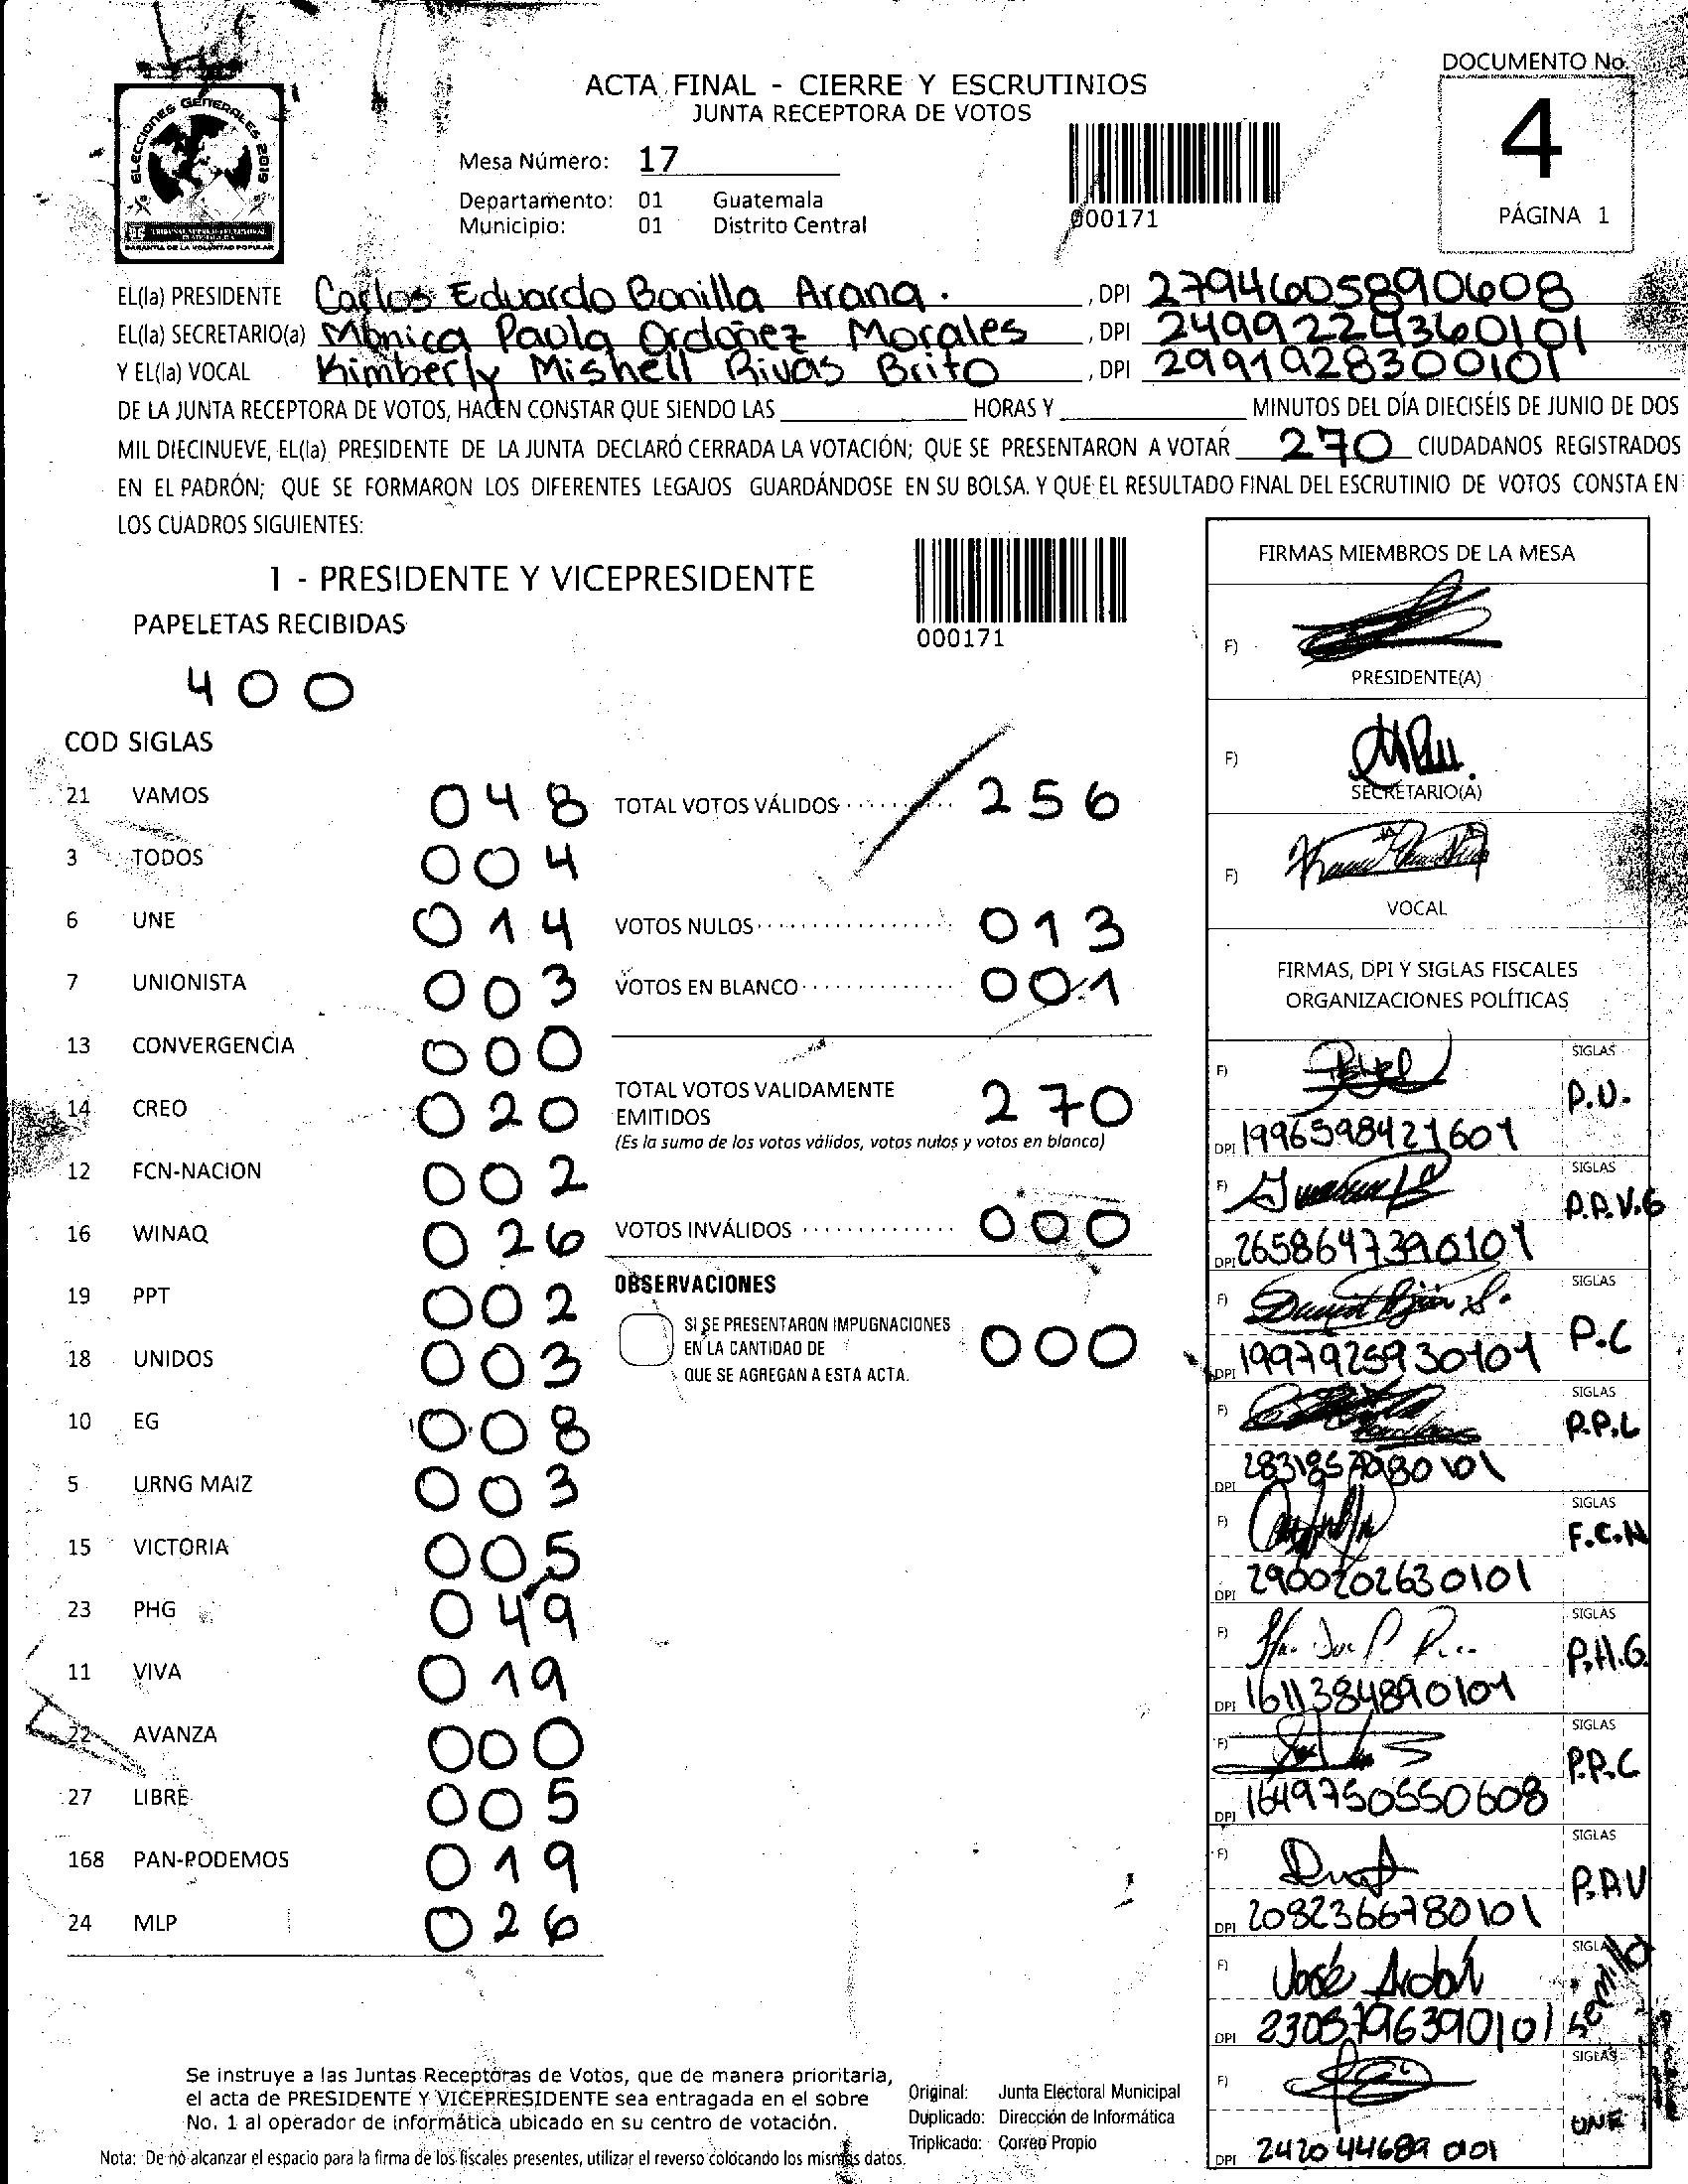 DOCUMENTO No.
4
PÁGINA 1
ELECCIONES GENERALES 2019
ACTA FINAL - CIERRE Y ESCRUTINIOS
JUNTA RECEPTORA DE VOTOS
Mesa Número: 17
Departamento: 01 Guatemala
Municipio: 01 Distrito Central
000171
EL(la) PRESIDENTE Carlos Eduardo Bonilla Arana. , DPI 2794605890608
EL(la) SECRETARIO(a) Mónica Paola Ordoñez Morales , DPI 2499224360101
Y EL(la) VOCAL Kimberly Mishell Rivas Brito , DPI 2991928300101
DE LA JUNTA RECEPTORA DE VOTOS, HACEN CONSTAR QUE SIENDO LAS HORAS Y MINUTOS DEL DÍA DIECISÉIS DE JUNIO DE DOS
MIL DIECINUEVE, EL(la) PRESIDENTE DE LA JUNTA DECLARÓ CERRADA LA VOTACIÓN; QUE SE PRESENTARON A VOTAR 270 CIUDADANOS REGISTRADOS
EN EL PADRÓN; QUE SE FORMARON LOS DIFERENTES LEGAJOS GUARDÁNDOSE EN SU BOLSA. Y QUE EL RESULTADO FINAL DEL ESCRUTINIO DE VOTOS CONSTA EN
LOS CUADROS SIGUIENTES:
1 - PRESIDENTE Y VICEPRESIDENTE
000171
PAPELETAS RECIBIDAS
400
COD SIGLAS
21 VAMOS 048
3 TODOS 004
6 UNE 014
7 UNIONISTA 003
13 CONVERGENCIA 000
14 CREO 020
12 FCN-NACION 002
16 WINAQ 026
19 PPT 002
18 UNIDOS 003
10 EG 008
5 URNG MAIZ 003
15 VICTORIA 005
23 PHG 049
11 VIVA 019
22 AVANZA 000
27 LIBRE 005
168 PAN-PODEMOS 019
24 MLP 026
TOTAL VOTOS VÁLIDOS 256
VOTOS NULOS 013
VOTOS EN BLANCO 001
TOTAL VOTOS VALIDAMENTE
EMITIDOS 270
(Es la suma de los votos válidos, votos nulos y votos en blanco)
VOTOS INVÁLIDOS 000
OBSERVACIONES
SI SE PRESENTARON IMPUGNACIONES
EN LA CANTIDAD DE 000
QUE SE AGREGAN A ESTA ACTA.
FIRMAS MIEMBROS DE LA MESA
F)
PRESIDENTE(A)
F)
SECRETARIO(A)
F)
VOCAL
FIRMAS, DPI Y SIGLAS FISCALES
ORGANIZACIONES POLÍTICAS
F) SIGLAS P.U.
DPI 1996598421601
F) SIGLAS P.P.V.G
DPI 2658647390101
F) SIGLAS P.C
DPI 1997925930101
F) SIGLAS P.P.L
DPI
F) SIGLAS F.C.N
DPI 2900202630101
F) SIGLAS P.H.G.
DPI 1611384890101
F) SIGLAS P.P.C
DPI 1649750550608
F) SIGLAS P.A.V
DPI 2082366780101
F) José SIGLAS Semilla
DPI 2305796390101
F) SIGLAS UNE
DPI
Se instruye a las Juntas Receptoras de Votos, que de manera prioritaria,
el acta de PRESIDENTE Y VICEPRESIDENTE sea entragada en el sobre
No. 1 al operador de informática ubicado en su centro de votación.
Original: Junta Electoral Municipal
Duplicado: Dirección de Informática
Triplicado: Correo Propio
Nota: De no alcanzar el espacio para la firma de los fiscales presentes, utilizar el reverso colocando los mismos datos.